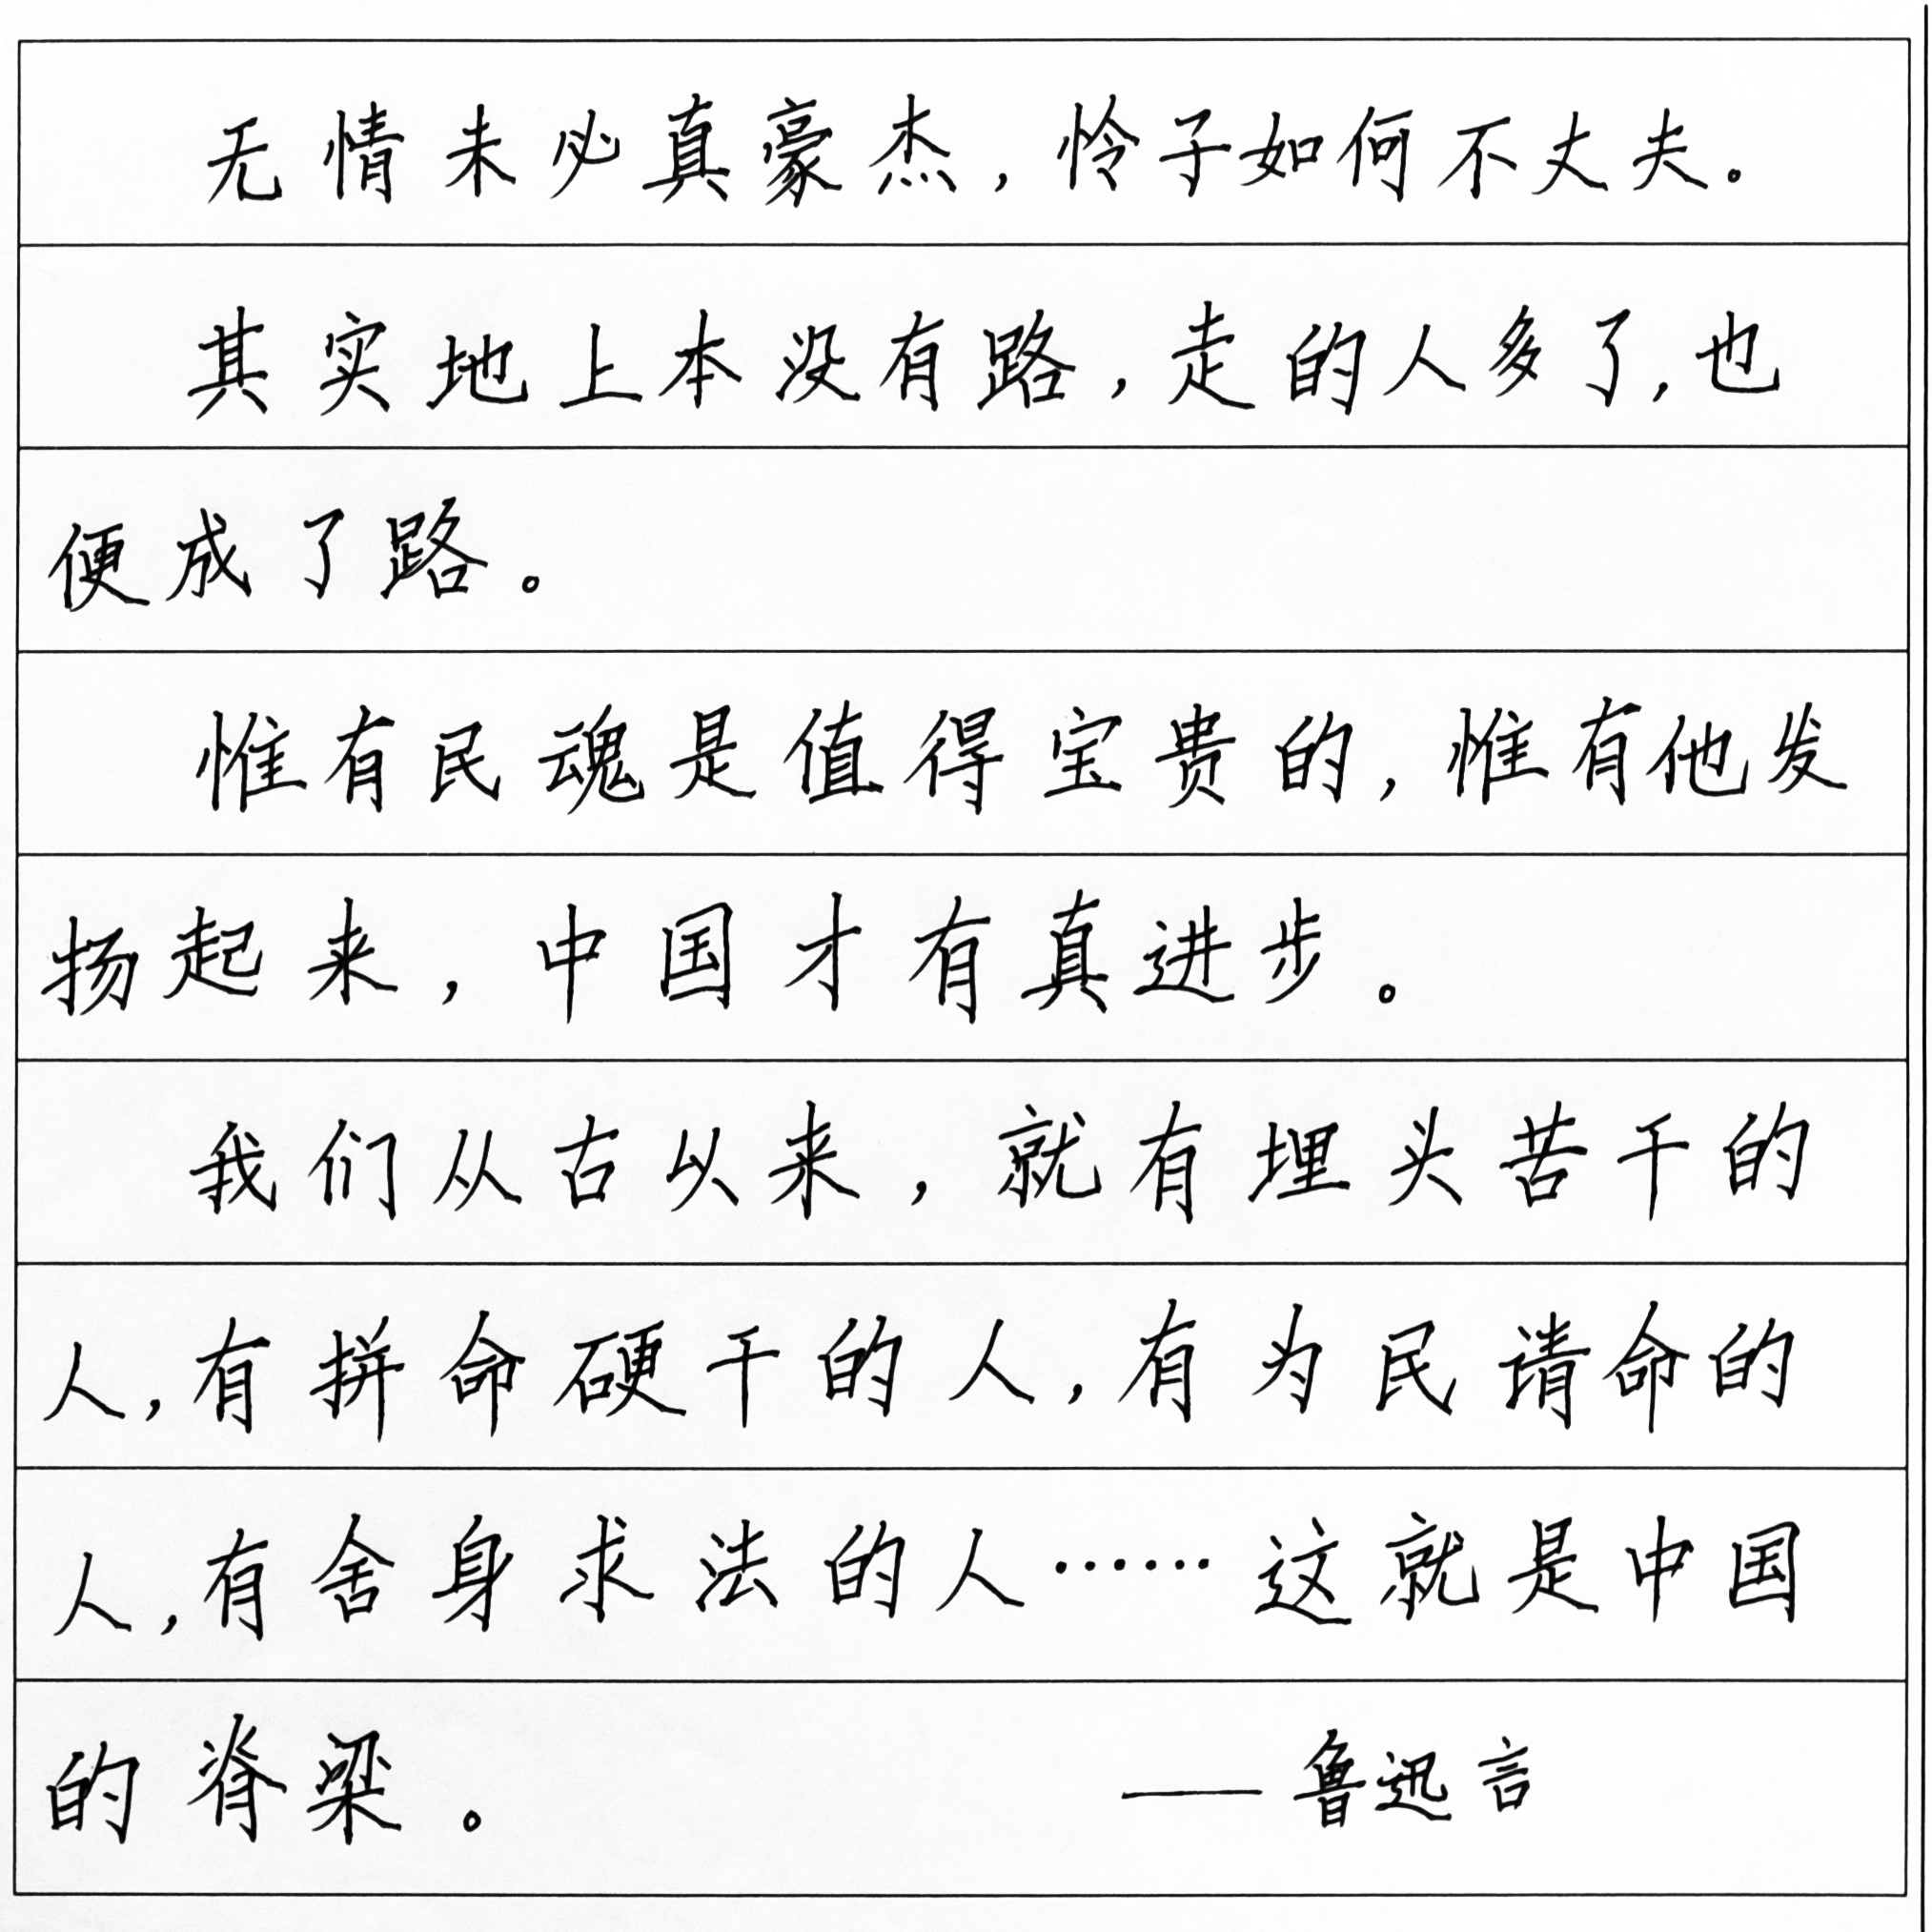 无情未必真豪杰，怜子如何不丈夫。
其实地上本没有路，走的人多了，也
便成了路。
惟有民魂是值得宝贵的，惟有他发
扬起来，中国才有真进步。
我们从古以来，就有埋头苦干的
人，有拼命硬干的人，有为民请命的
人，有舍身求法的人……这就是中国
的脊梁。 ——鲁迅言